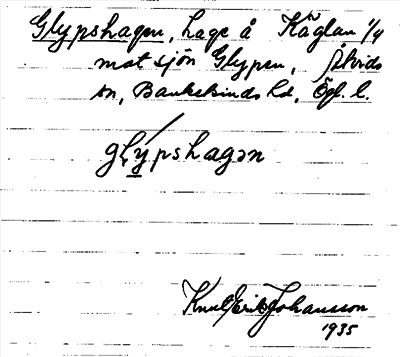 Glypshagen, hage å Käglan 1/4
mot sjön Glypen, Åtvids
sn, Bankekinds hd, Ögl. l.
glypshagən
Knut Erik Johansson
1935